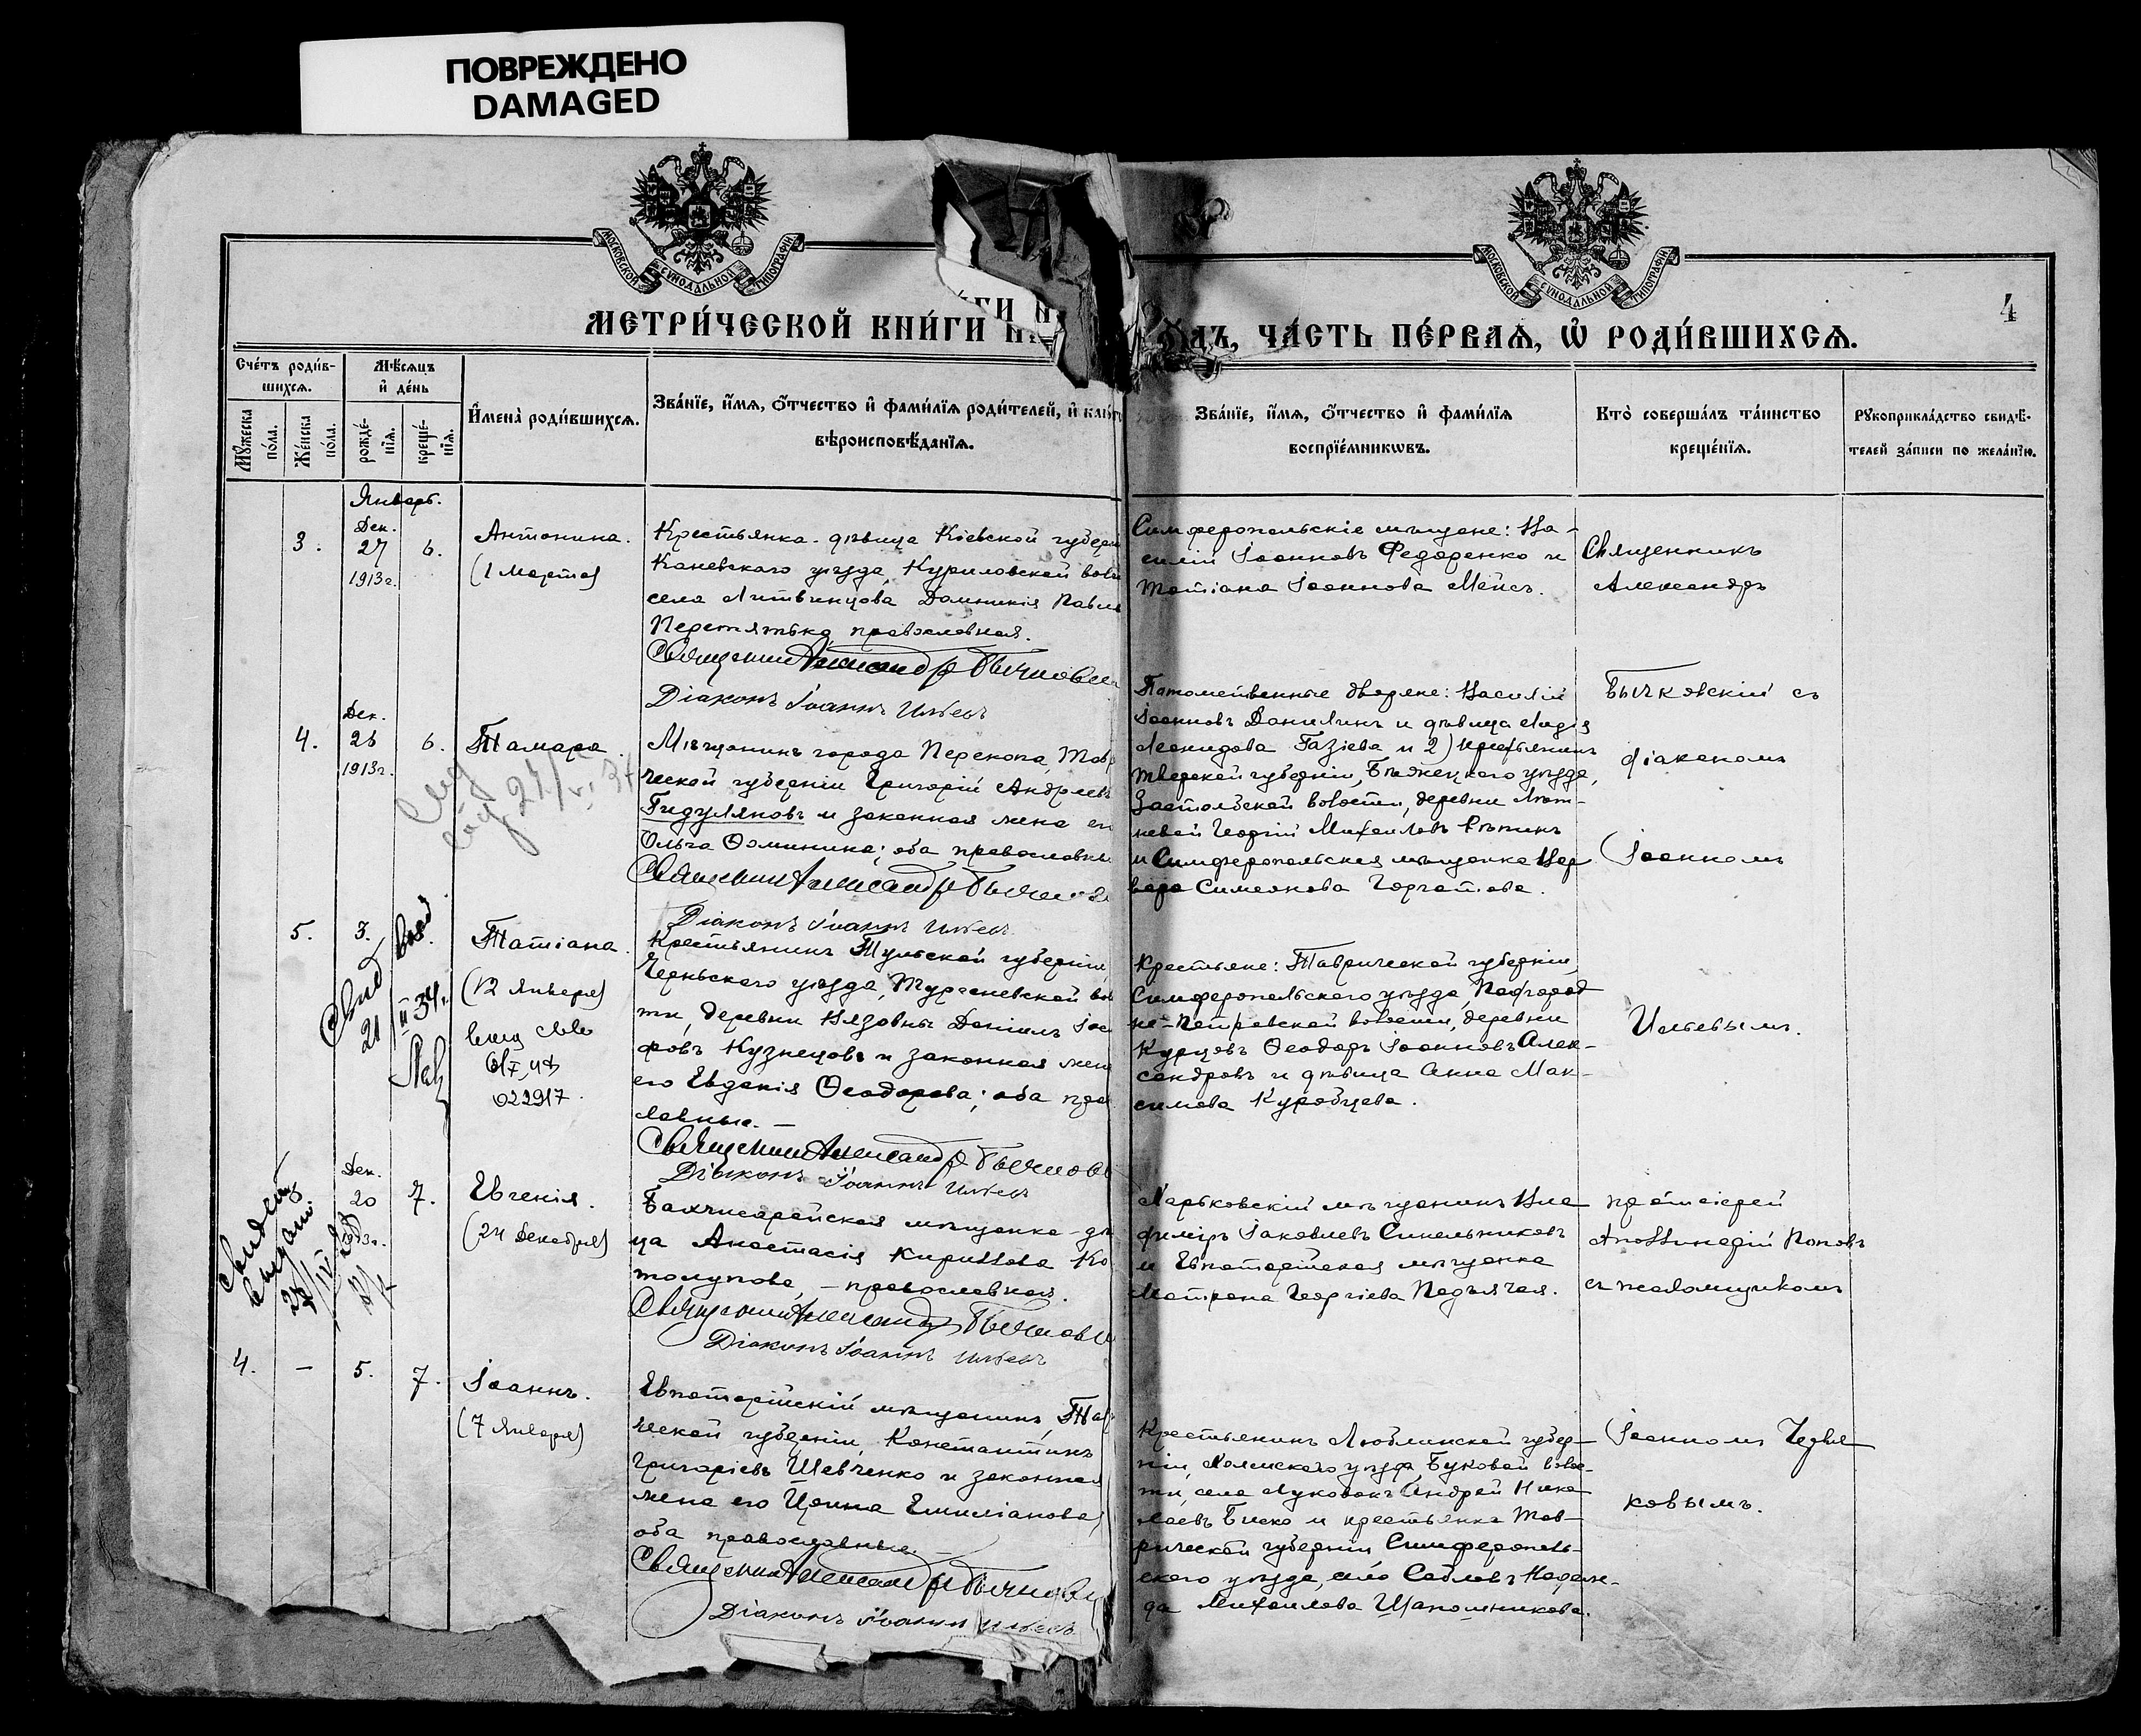 ПОВРЕЖДЕНО
DAMAGED
МОСКОВСКОЙ СѴНОДАЛЬНОЙ ТИПОГРАФІИ
МОСКОВСКОЙ СѴНОДАЛЬНОЙ ТИПОГРАФІИ
4
МЕТРИ́ЧЕСКОЙ КНИ́ГИ
ЧА́СТЬ ПЕ́РВАѦ, Ѿ РОДИ́ВШИХСѦ.
Сче́тъ роди́в-
шихсѧ.
Мꙋжеска
по́ла.
Же́нска
по́ла.
Мѣ́сѧцъ
и҆ де́нь
рожде́-
нїѧ.
креще́-
нїѧ.
И҆мена̀ роди́вшихсѧ.
Зва́нїе, и҆́мѧ, ѻ҆́тчество и҆ фами́лїѧ роди́телей, и҆
вѣроисповѣ́данїѧ.
Зва́нїе, и҆́мѧ, ѻ҆́тчество и҆ фами́лїѧ
воспрїе́мникѡвъ.
Кто̀ соверша́лъ та́инство
креще́нїѧ.
Рꙋкоприкла́дство свидѣ́-
телей за́писи по жела́нїю.
Январь.
3.
Дек.
27
1913г.
6.
Антонина.
(1 Марта)
Крестьянка-дѣвица Кіевской губерн
Каневскаго уѣзда, Куриловской вол
села Литвинцова Домникія Павл
Перетятько, православная.
Священник Александр Бычковск
Діаконъ Іоаннъ Ильевъ
Симферопольскіе мѣщане: Ва-
силій Іоанновъ Федоренко и
Татіана Іоаннова Мейсъ.
Священникъ
Александръ
4.
Дек.
28
1913г.
6.
Тамара.
Мѣщанинъ города Перекопа, Тавр
ческой губерніи Григорій Андреевъ
Гидуляновъ и законная жена ег
Ольга Ѳоминина; оба православны
Священник Александр Бычков
Діаконъ Іоаннъ Ильевъ
Потомственные дворяне: Василій
Іоанновъ Данилинъ и дѣвица Лидія
Леонидова Газіева и 2) крестьянинъ
Тверской губерніи, Бѣжецкаго уѣзда,
Застолбской волости, деревни Лют-
невой Георгій Михаиловъ Рѣпинъ
и Симферопольская мѣщанка Вар
вара Симеонова
Бычковскій съ
діакономъ
Іоанномъ
5.
3.
Татіана.
(12 Января)
022917
Крестьянинъ Тульской губерніи,
Чернскаго уѣзда, Тургеневской вол
ти, деревни Вязовны Даніилъ Іос
фовъ Кузнецовъ и законная жен
его Евдокія Ѳеодорова; оба прав
лавные.
Священник Александр Бычков
Діаконъ Іоаннъ Ильевъ
Крестьяне: Таврической губерніи,
Симферопольскаго уѣзда, Подгород
не-Петровской волости, деревни
Курцовъ Ѳеодоръ Іоанновъ Алек-
сандровъ и дѣвица Анна Мак-
симова Куробцева.
Ильевымъ.
Дек.
20
1913г.
7.
Евгенія.
(24 Декабря)
Бахчисарайская мѣщанка-дѣ
ца Анастасія Кириллова Ко
толупова, - православная.
Священник Александр Бычковск
Діаконъ Іоаннъ Ильевъ
Харьковскій мѣщанинъ Вла
диміръ Іаковлевъ Синельниковъ
и Евпаторійская мѣщанка
Матрона Георгіева Подъячая.
протоіерей
Аполлинарій Поповъ
съ псаломщикомъ
4.
-
5.
7.
Іоаннъ.
(7 Января)
Евпаторійскій мѣщанинъ, Тав
ческой губерніи, Константинъ
Григоріевъ Шевченко и законная
жена его Ирина Емиліанова,
оба православные.
Священник Александр Бычковск
Діаконъ Іоаннъ Ильевъ
Крестьянинъ Люблинской губер-
ніи, Холмскаго уѣзда, Буковой волос-
ти, села Луковокъ Андрей Нико
лаевъ Биско и крестьянка Тав-
рической губерніи Симферополь-
скаго уѣзда, село Саблов Надеж-
да Михаилова Шапошникова.
Іоанномъ
ковымъ.